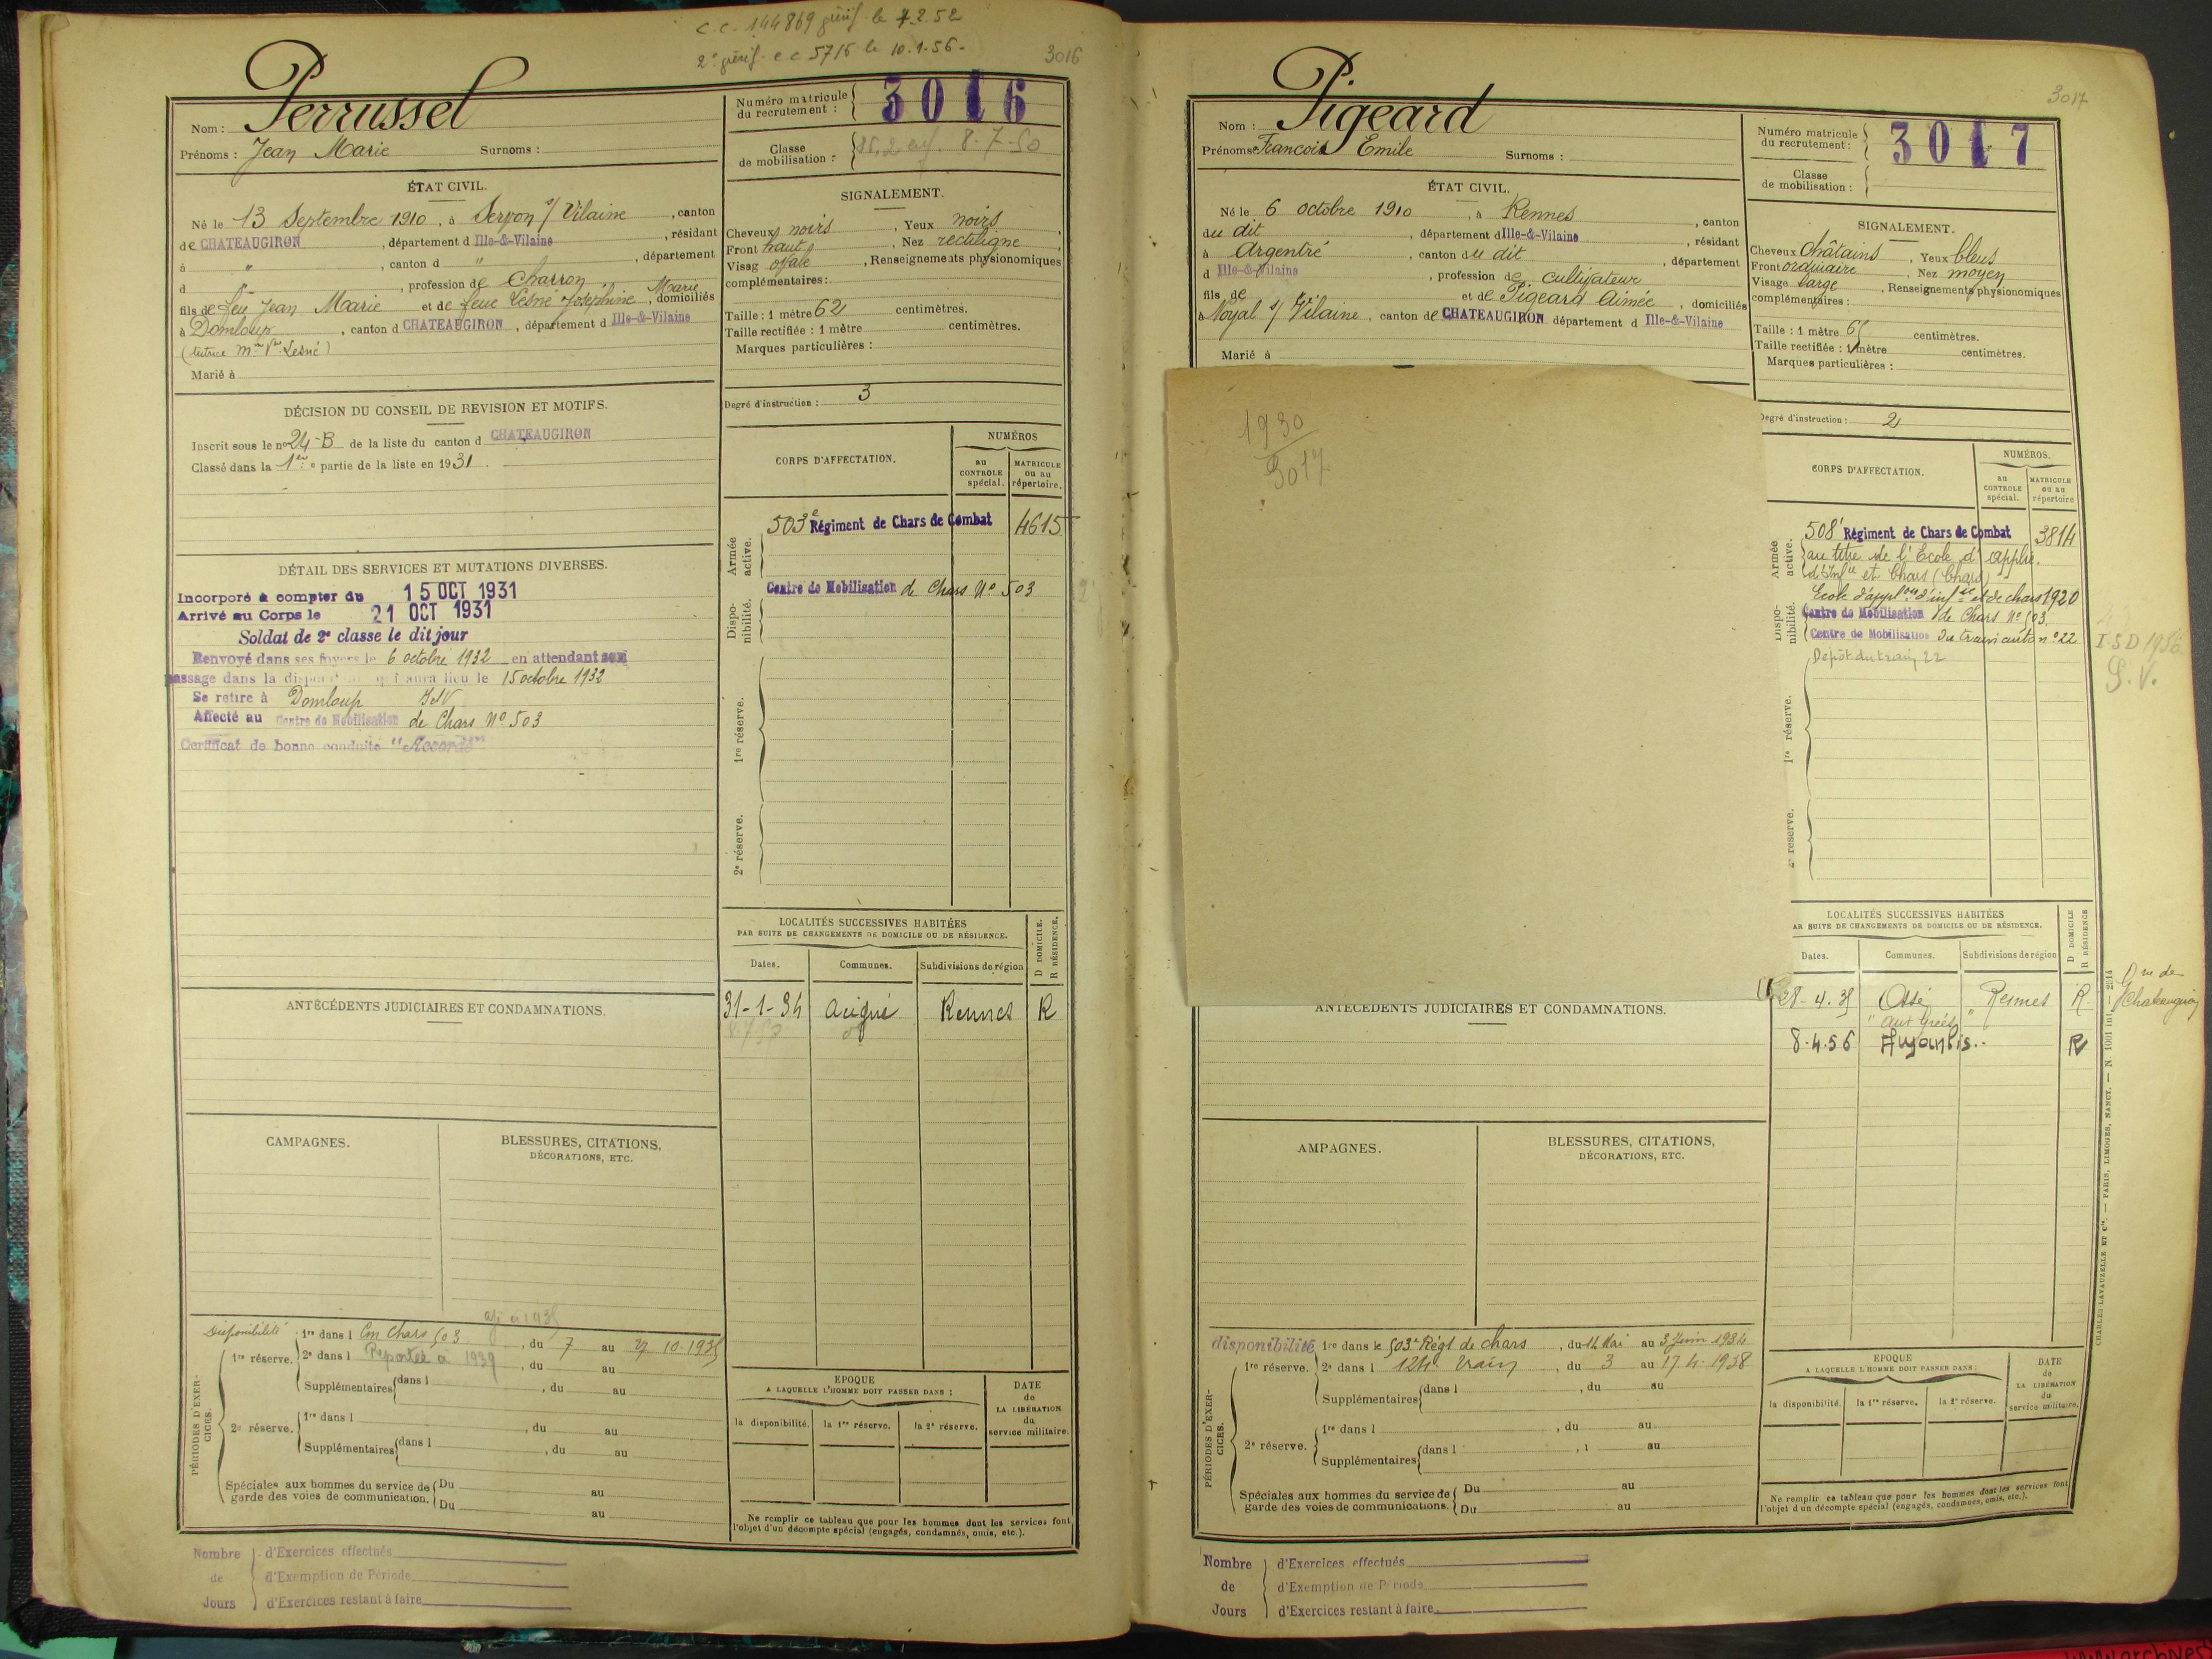 c.c. 144869 le 7.2.52
2e c.c 5716 le 10.1.56.
3016
Nom : Perrussel
Prénoms : Jean Marie Surnoms :
Numéro matricule du recrutement : 3016
Classe de mobilisation : 8-7-50
ÉTAT CIVIL.
Né le 13 Septembre 1910, à Servon s/ Vilaine, canton
de CHATEAUGIRON, département d Ille-&-Vilaine, résidant
à ", canton d ", département
d ", profession de Charron,
fils de feu Jean Marie et de feue Lesné Joséphine Marie, domiciliés
à Domloup, canton d CHATEAUGIRON, département d Ille-&-Vilaine
(tutrice Mme Vve Lesné)
Marié à
SIGNALEMENT.
Cheveux noirs, Yeux noirs,
Front haut, Nez rectiligne,
Visag ovale, Renseignements physionomiques
complémentaires :
Taille : 1 mètre 62 centimètres.
Taille rectifiée : 1 mètre centimètres.
Marques particulières :
Degré d'instruction : 3
DÉCISION DU CONSEIL DE REVISION ET MOTIFS.
Inscrit sous le no 24-B de la liste du canton d CHATEAUGIRON
Classé dans la 1ère partie de la liste en 1931.
CORPS D'AFFECTATION.
NUMÉROS
au CONTROLE spécial.
MATRICULE ou au répertoire.
Armée active.
503e Régiment de Chars de Combat 4615
Disponibilité.
Centre de Mobilisation de Chars No 503
1re réserve.
2e réserve.
DÉTAIL DES SERVICES ET MUTATIONS DIVERSES.
Incorporé à compter du 15 OCT 1931
Arrivé au Corps le 21 OCT 1931
Soldat de 2e classe le dit jour
Renvoyé dans ses foyers le 6 octobre 1932 en attendant son
passage dans la disponibilité qui aura lieu le 15 octobre 1932
Se retire à Domloup I&V
Affecté au Centre de Mobilisation de Chars No 503
Certificat de bonne conduite "Accordé"
LOCALITÉS SUCCESSIVES HABITÉES
PAR SUITE DE CHANGEMENTS DE DOMICILE OU DE RÉSIDENCE.
D DOMICILE.
R RÉSIDENCE.
Dates. Communes. Subdivisions de région
31-1-34 Acigné Rennes R
ANTÉCÉDENTS JUDICIAIRES ET CONDAMNATIONS.
CAMPAGNES.
BLESSURES, CITATIONS,
DÉCORATIONS, ETC.
PÉRIODES D'EXERCICES.
Disponibilité 1re dans l Cm Chars 503, du 7 au 27 10.1935
1re réserve. 2e dans l Reportée à 1939, du au
Supplémentaires dans l, du au
2e réserve. 1re dans l, du au
Supplémentaires dans l, du au
Spéciales aux hommes du service de garde des voies de communication. Du au
Du au
EPOQUE
A LAQUELLE L'HOMME DOIT PASSER DANS :
la disponibilité. la 1re réserve. la 2e réserve.
DATE de LA LIBÉRATION du service militaire.
Ne remplir ce tableau que pour les hommes dont les services font
l'objet d'un décompte spécial (engagés, condamnés, omis, etc.).
Nombre de Jours
d'Exercices effectués
d'Exemption de Période
d'Exercices restant à faire
3017
Nom : Pigeard
Prénoms François Emile Surnoms :
Numéro matricule du recrutement : 3017
Classe de mobilisation :
ÉTAT CIVIL.
Né le 6 octobre 1910, à Rennes, canton
du dit, département d Ille-&-Vilaine, résidant
à Argentré, canton du dit, département
d Ille-&-Vilaine, profession de cultivateur
fils de et de Pigeard Aimée, domiciliés
à Noyal s/ Vilaine, canton de CHATEAUGIRON département d Ille-&-Vilaine
Marié à
SIGNALEMENT.
Cheveux châtains, Yeux bleus
Front ordinaire, Nez moyen
Visage large, Renseignements physionomiques
complémentaires :
Taille : 1 mètre 65 centimètres.
Taille rectifiée : 1 mètre centimètres.
Marques particulières :
Degré d'instruction : 2
1930
3017
CORPS D'AFFECTATION.
NUMÉROS.
au CONTROLE spécial.
MATRICULE ou au répertoire
Armée active.
508e Régiment de Chars de Combat 3814
au titre de l'Ecole d'applic.
d'Infie et Chars (Chars)
Ecole d'applon d'infie et de chars 1920
Disponibilité.
Centre de Mobilisation de Chars No 503.
Centre de Mobilisation du train auto no 22
Dépôt du train 22
I.S.D 1956
S.V.
1re réserve.
2e réserve.
LOCALITÉS SUCCESSIVES HABITÉES
AR SUITE DE CHANGEMENTS DE DOMICILE OU DE RÉSIDENCE.
D DOMICILE
R RÉSIDENCE
Dates. Communes. Subdivisions de région
28-4.35 Ossé Rennes R
8-4.56 Amanlis.. R
ANTÉCÉDENTS JUDICIAIRES ET CONDAMNATIONS.
AMPAGNES.
BLESSURES, CITATIONS,
DÉCORATIONS, ETC.
PÉRIODES D'EXERCICES.
disponibilité 1re dans le 503e Régt de chars, du 14 Mai au 3 Juin 1934
1re réserve. 2e dans l 124 train, du 3 au 17.4.1938
Supplémentaires dans l, du au
2e réserve. 1re dans l, du au
Supplémentaires dans l au
Spéciales aux hommes du service de garde des voies de communications. Du au
Du au
EPOQUE
A LAQUELLE L'HOMME DOIT PASSER DANS :
la disponibilité. la 1re réserve. la 2e réserve.
DATE de LA LIBÉRATION du service militaire.
Ne remplir ce tableau que pour les hommes dont les services font
l'objet d'un décompte spécial (engagés, condamnés, omis, etc.).
CHARLES-LAVAUZELLE ET Cie. — PARIS, LIMOGES, NANCY.
Nombre de Jours
d'Exercices effectués
d'Exemption de Période
d'Exercices restant à faire